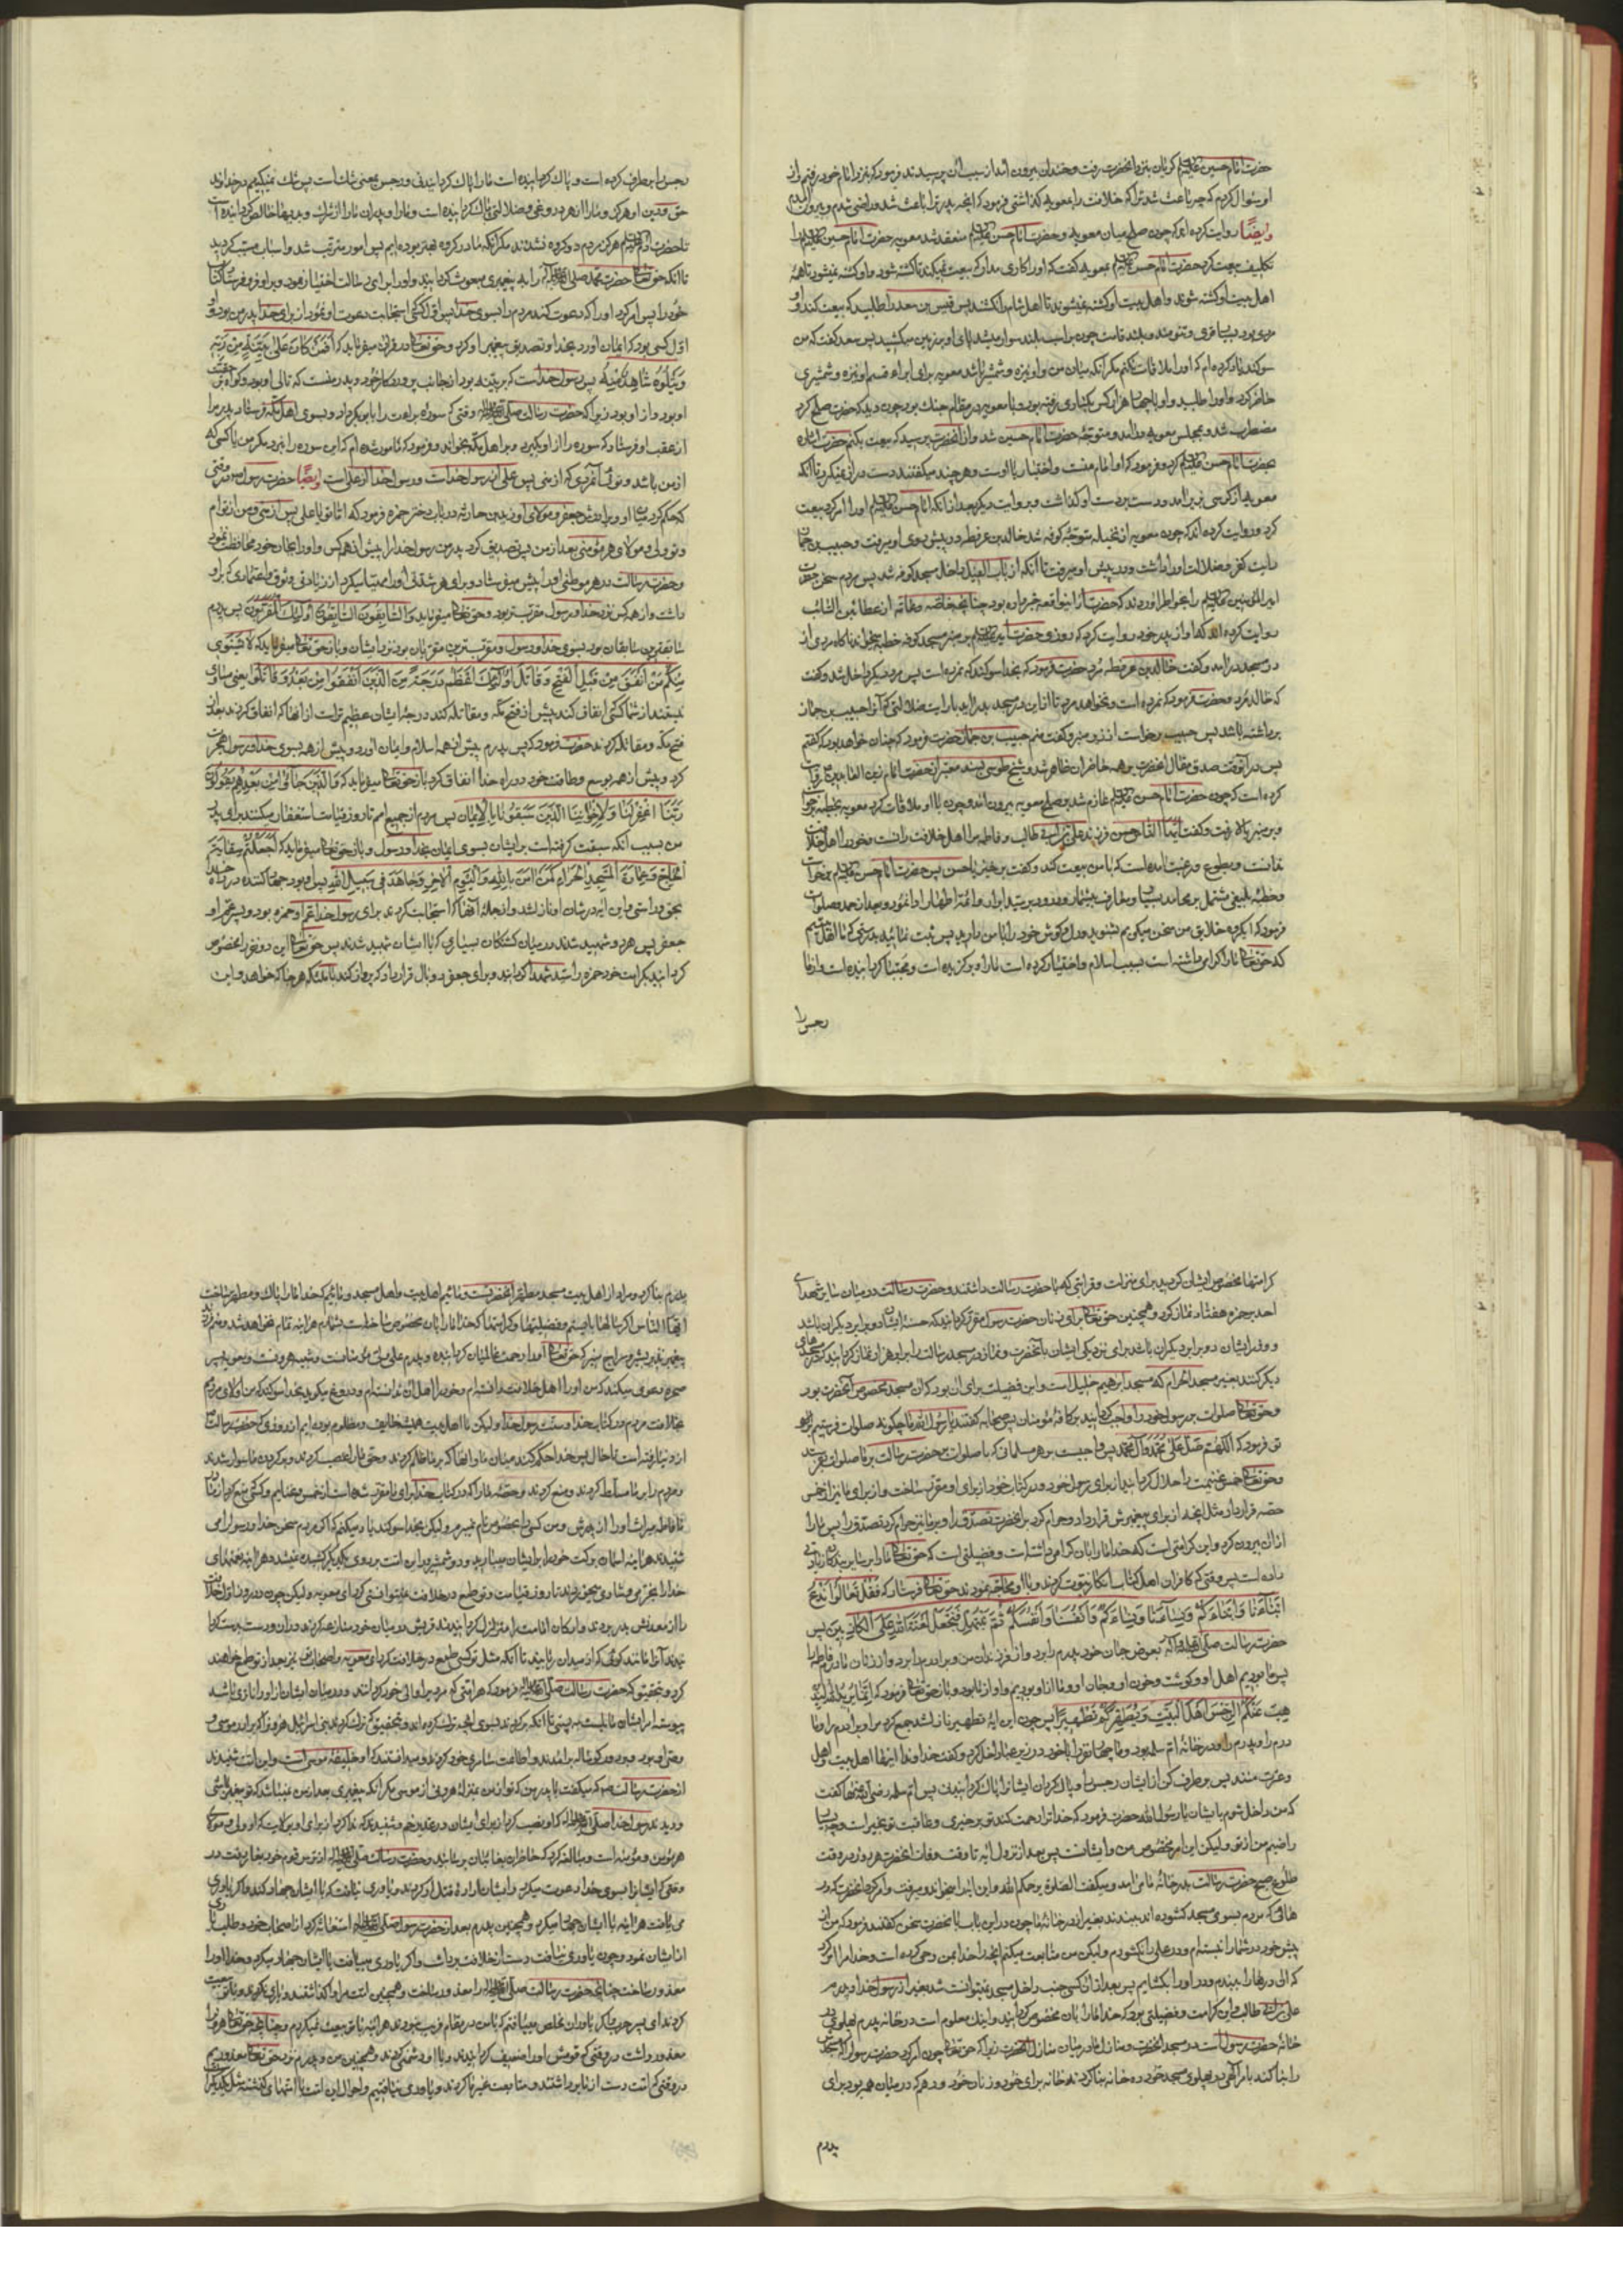 حضرت امام حسین علیه السلام گریان بنزد آنحضرت رفت و خندان بیرون آمد از سبب آن پرسیدند فرمود که بنزد امام خود رفتم و از
او سؤال کردم که چه باعث شد ترا که خلافت را بمعویه گذاشتی فرمود که آنچه پدر ترا باعث شد و راضی شدم و بیرون آمدم
وایضا روایت کرده اند که چون صلح میان معویه و حضرت امام حسن علیه السلام منعقد شد معویه حضرت امام حسین علیه السلام را
تکلیف بیعت کرد حضرت امام حسن علیه السلام بمعویه گفت که او را کاری مدار که بیعت نمیکند تا کشته شود و او کشته نمیشود تا همه
اهل بیت او کشته شوند و اهل بیت او کشته نمیشوند تا اهل شام را نکشند پس قیس بن سعد را طلبید که بیعت کند و او
مردی بود بسیار قوی و تنومند و بلند قامت چون بر اسب بلند سوار میشد پای او بر زمین میکشید پس سعد گفت که من
سوگند یاد کرده ام که او را ملاقات نکنم مگر آنکه میان من و او نیزه و شمشیر باشد معویه برای ابراء قسم او نیزه و شمشیری
حاضر کرد و او را طلبید
مضطرب شد و بمجلس معویه درآمد و متوجه حضرت امام حسین شد و از آنحضرت پرسید که بیعت بکنم حضرت اشاره
بحضرت امام حسن علیه السلام کرد و فرمود که او امام منست و اختیار با اوست و هر چند میگفتند دست دراز نمیکرد تا آنکه
معویه از کرسی بزیر آمد و دست بر دست او گذاشت و بروایت دیگر بعد از آنکه امام حسن علیه السلام او را امر کرد بیعت
کرد و روایت کرده اند که چون معویه از نخیله متوجه کوفه شد خالد بن عرفطه در پیش روی او میرفت و حبیب بن جماز
رایت کفر و ضلالت او را داشت و در پیش او میرفت تا آنکه از باب الفیل داخل مسجد کوفه شد پس مردم سخن حضرت
امیر المؤمنین علیه السلام را بخاطر آوردند که حضرت از این واقعه خبر داده بود چنانچه خاصه و عامه از عطاء بن السائب
روایت کرده اند که او از پدر خود روایت کرد که روزی حضرت امیر علیه السلام بر منبر مسجد کوفه خطبه میخواند ناگاه مردی از
در مسجد درآمد و گفت خالد بن عرفطه مرد حضرت فرمود که بخدا سوگند که نمرده است پس مرد دیگر داخل شد و گفت
که خالد مرد و حضرت فرمود که نمرده است و نخواهد مرد تا از این در مسجد بدر آید با رایت ضلالتی که آنرا حبیب بن جماز
برداشته باشد پس حبیب برخاست از زیر منبر و گفت منم حبیب بن جماز حضرت فرمود که چنان خواهد بود که گفتم
پس در آنوقت صدق مقال آنحضرت بر همه حاضران ظاهر شد و شیخ طوسی بسند معتبر از حضرت امام زین العابدین ع روایت
کرده است که چون حضرت امام حسن علیه السلام عازم شد بر صلح معویه بیرون آمد و چون با او ملاقات کرد معویه بخطبه برخواست
و بر منبر بالا رفت و گفت ایها الناس حسن فرزند علی بن ابی طالب و فاطمه مرا اهل خلافت دانست و خود را اهل خلافت
ندانست و بطوع و رغبت آمده است که با من بیعت کند و گفت برخیز یا حسن پس حضرت امام حسن علیه السلام برخواست
و خطبه بلیغی مشتمل بر محامد بسیار و معارف بیشمار و درود بر سید ابرار و ائمه اطهار ادا نمود و بعد از حمد و صلوات
فرمود که ای گروه خلایق من سخن میگویم بشنوید و دل و گوش خود را با من دارید
که حق تعالی ما را گرامی داشته است بسبب اسلام و اختیار کرده است ما را و برگزیده است و مجتبا گردانیده است و از ما
رجس را
رجس را برطرف کرده است و پاک گردانیده است ما را پاک گردانیدنی و رجس بمعنی شک است پس شک نمیکنیم در خداوند
حق و دین او هرگز و ما را از هر دروغی و ضلالتی پاک گردانیده است و ما را و پدران ما را از شرک و بدیها خالص گردانیده است
تا حضرت آدم علیه السلام هرگز مردم دو گروه نشدند مگر آنکه ما در گروه بهتر بوده ایم پس امور مترتب شد و اسباب مسبب گردید
تا آنکه حق تعالی حضرت محمد صلی الله علیه و آله را به پیغمبری مبعوث گردانید و او را برای رسالت اختیار نمود و بر او فرو فرستاد کتاب
خود را پس امر کرد او را که دعوت کند مردم را بسوی خدا پس اول کسی که استجابت دعوت او نمود از برای خدا پدر من بود و او
اول کسی بود که ایمان آورد بخدا و تصدیق پیغمبر او کرد و حق تعالی در قرآن میفرماید که افمن کان علی بینة من ربه
و یتلوه شاهد منه پس رسول خداست که بر بینه بود از جانب پروردگار خود و پدر منست که تالی او بود و گواه حقیت
او بود و از او بود زیرا که حضرت رسالت صلی الله علیه و آله وقتی که سوره برائت را بابو بکر داد و بسوی اهل مکه فرستاد پدرم را
از عقب او فرستاد که سوره را از او بگیرد و بر اهل مکه بخواند و فرمود که مامور شده ام که این سوره را نبرد مگر من یا کسی که
از من باشد و تو آنمردی که از منی پس علی از رسول خداست و رسول خدا از علی است وایضا حضرت رسول ص در وقتی
که حکم کرد میان او و برادرش جعفر و مولای او زید بن حارثه در باب دختر حمزه فرمود که اما تو یا علی پس از منی و من از توام
و تو ولی و مولای هر مؤمنی بعد از من پس تصدیق کرد پدر من رسول خدا را پیش از همه کس و او را بجان خود محافظت نمود
و حضرت رسالت در هر موطنی او را پیش میفرستاد و برای هر شدتی او را مهیا میکرد از زیادتی وثوق و اعتمادی که بر او
داشت و از همه کس نزد خدا و رسول مقرب تر بود و حق تعالی میفرماید و السابقون السابقون اولئک المقربون پس پدرم
سابقترین سابقان بود بسوی خدا و رسول و مقرب ترین مقربان بود نزد ایشان و باز حق تعالی میفرماید که لا یستوی
منکم من انفق من قبل الفتح و قاتل اولئک اعظم درجة من الذین انفقوا من بعد و قاتلوا یعنی مساوی
نیستند از شما کسی که انفاق کند پیش از فتح مکه و مقاتله کند درجه ایشان عظیم تر است از آنها که انفاق کردند بعد از
فتح مکه و مقاتله کردند حضرت فرمود که پس پدرم پیش از همه اسلام و ایمان آورد و پیش از همه بسوی خدا و رسول هجرت
کرد و پیش از همه بوسع و طاقت خود در راه خدا انفاق کرد باز حق تعالی میفرماید که و الذین جاؤا من بعدهم یقولون
ربنا اغفر لنا و لاخواننا الذین سبقونا بالایمان پس مردم از جمیع امم تا روز قیامت استغفار میکنند برای پدر
من بسبب آنکه سبقت گرفته است بر ایشان بسوی ایمان بخدا و رسول و باز حق تعالی میفرماید که اجعلتم سقایة
الحاج و عمارة المسجد الحرام کمن آمن بالله و الیوم الآخر و جاهد فی سبیل الله پس او بود جهاد کننده در راه خدا
بحق و راستی و این آیه در شان او نازل شد و از جمله آنها که استجابت کردند برای رسول خدا عم او حمزه بود و پسر عم او
جعفر پس هر دو شهید شدند در میان کشتگان بسیاری که با ایشان شهید شدند پس حق تعالی این دو نفر را مخصوص
گردانید بکرامت خود حمزه را سید شهدا گردانید و برای جعفر دو بال قرار داد که پرواز کند با ملائکه هر جا که خواهد و این
کرامتها مخصوص ایشان گردید برای منزلت و قرابتی که با حضرت رسالت داشتند و حضرت رسالت در میان سایر شهدای
احد بر حمزه هفتاد نماز کرد و همچنین حق تعالی برای زنان حضرت رسول مقرر گردانید که حسنه ایشان دو برابر دیگران باشد
و وزر ایشان دو برابر دیگران باشد برای نزدیکی ایشان بآنحضرت و نماز در مسجد رسالت را برابر هزار نماز گردانید که در مسجدهای
دیگر کنند بغیر مسجد الحرام که مسجد ابرهیم خلیل است و این فضیلت برای آن بود که آن مسجد مخصوص آنحضرت بود
و حق تعالی صلوات بر رسول خود را واجب گردانید بر کافه مؤمنان پس صحابه گفتند یا رسول الله ما چگونه صلوات فرستیم بر
تو فرمود که اللهم صل علی محمد و آل محمد پس واجبست بر هر مسلمانی که با صلوات بر حضرت رسالت بر ما صلوات بفرستد
و حق تعالی خمس غنیمت را حلال گردانید از برای رسول خود و در کتاب خود از برای او مقرر ساخت و از برای ما نیز از خمس
حصه قرار داد مثل آنچه از برای پیغمبرش قرار داد و حرام کرد بر آنحضرت تصدق را و بر ما نیز حرام کرد تصدق را پس ما را
از آن بیرون کرد و این کرامتی است که خدا ما را بآن گرامی داشته است و فضیلتی است که حق تعالی ما را بر سایر بندگان زیادتی
داده است پس وقتی که کافران اهل کتاب انکار نبوت کردند و با او محاجه نمودند حق تعالی فرستاد که فقل تعالوا ندع
ابناءنا و ابناءکم و نساءنا و نساءکم و انفسنا و انفسکم ثم نبتهل فنجعل لعنة الله علی الکاذبین پس
حضرت رسالت صلی الله علیه و آله بعوض جان خود پدرم را برد و از فرزندان من و برادرم را برد و از زنان مادرم فاطمه را
پس ما بودیم اهل او و گوشت و خون او و جان او و ما از او بودیم و او از ما بود و باز حق تعالی فرمود که انما یرید الله لیذ
هب عنکم الرجس اهل البیت و یطهرکم تطهیرا پس چون این آیه تطهیر نازل شد جمع کرد مرا و برادرم را و ما
درم را و پدرم را و در خانه ام سلمه بود و ما چهار نفر را با خود در زیر عبا داخل کرد و گفت خداوندا اینها اهل بیت و اهل
و عترت منند پس برطرف کن از ایشان رجس را و پاک گردان ایشانرا پاک گردانیدنی پس ام سلمه رضی الله عنها گفت
که من داخل شوم با ایشان یا رسول الله حضرت فرمود که خدا ترا رحمت کند تو بر خیری و عاقبت تو بخیر است و چه بسیار
راضیم من از تو و لیکن این امر مخصوص من و ایشانست پس بعد از نزول آیه تا وقت وفات آنحضرت هر روز در وقت
طلوع صبح حضرت رسالت بدر خانه ما می آمد و میگفت الصلوة یرحمکم الله و این آیه را میخواند و میرفت و امر کرد آنحضرت که در
هائی که مردم بسوی مسجد گشوده اند ببندند بغیر از در خانه ما چون در این باب با آنحضرت سخن گفتند فرمود که من از
پیش خود در شما را نبسته ام و در علی را نگشوده ام و لیکن من متابعت میکنم آنچه را خدا بمن وحی کرده است و خدا مرا امر کرد
که آن درها را ببندم و در او را بگشایم پس بعد از آن کسی جنب داخل مسجد نمیتوانست شد بغیر از رسول خدا و پدرم
علی بن ابی طالب و این کرامت و فضیلتی بود که خدا ما را بآن مخصوص گردانید و اینک معلوم است در خانه پدرم پهلوی در
خانه حضرت رسول است در مسجد آنحضرت و منازل ما در میان منازل آنحضرت زیرا که حق تعالی چون امر کرد حضرت رسول را که مسجدش
را بنا کند با مر الهی در پهلوی مسجد خود ده خانه بنا کرد نه خانه برای خود و زنان خود و دهم که در میان همه بود برای
پدرم
پدرم بنا کرد و مراد از اهل بیت مسجد مطهر آنحضرتست و مائیم اهل بیت و اهل مسجد و مائیم که خدا ما را پاک و مطهر ساخت
ایها الناس اگر سالها بایستم و فضیلتها و کرامتها که خدا ما را بآن مخصوص ساخته است بشمارم هر آینه تمام نخواهد شد و منم فرزند
پیغمبر نذیر بشیر و سراج منیر که حق تعالی او را رحمت عالمیان گردانیده و پدرم علی ولی مؤمنانست و شبیه هرونست و معویه پسر
صخره دعوی میکند که من او را اهل خلافت دانسته ام و خود را اهل آن ندانسته ام و دروغ میگوید بخدا سوگند که من اولای مردم
بخلافت مردم در کتاب خدا و سنت رسول خدا و لیکن ما اهل بیت همیشه خایف و مظلوم بوده ایم از روزی که حضرت رسالت ص
از دنیا رفته است تا حال پس خدا حکم کند میان ما و آنها که بر ما ظلم کردند و حق ما را غصب کردند و بر گردن ما سوار شدند
و مردم را بر ما مسلط کردند و منع کردند حصه ما را که در کتاب خدا برای ما مقرر شده است از خمس و غنایم و کسی که منع کرد از مادر
ما فاطمه میراث او را از پدرش و من کسی را بخصوص نام نمیبرم و لیکن بخدا سوگند یاد میکنم که اگر مردم سخن خدا و رسول را می
شنیدند هر آینه آسمان برکت خود را بر ایشان میبارید و دو شمشیر در این امت بر روی یکدیگر کشیده نمیشد و هر آینه نعمتهای
خدا را بخرمی و شادی میخوردند تا روز قیامت و تو طمع در خلافت نمیتوانستی کرد ای معویه و لیکن چون در روز اول خلافت
را از معدنش بدر بردند و ارکان امامت را متزلزل گردانیدند قریش در میان خود منازعه کردند در آن و دست بدست گردا
نیدند آنرا مانند گوئی که از میدان ربایند تا آنکه مثل تو کسی طمع در خلافت کرد ای معویه و اصحاب تو نیز بعد از تو طمع خواهند
کرد و بتحقیق که حضرت رسالت صلی الله علیه و آله فرمود که هر امتی که مردیرا والی خود گردانند و در میان ایشان از او داناتری باشد
پیوسته امر ایشان مایلست به پستی تا آنکه برگردند بسوی آنچه ترک کرده اند و بتحقیق که ترک کردند بنی اسرائیل هرون را که برادر موسی و
وصی او بود و بر دور گوساله برآمدند و اطاعت سامری خود کردند و میدانستند که او خلیفه موسی است و این امت شنیدند
از حضرت رسالت ص که میگفت با پدر من که تو از من بمنزله هرونی از موسی مگر آنکه پیغمبری بعد از من نمیباشد
و دیدند رسول خدا صلی الله علیه و آله را که او را نصب کرد از برای ایشان در غدیر خم و شنیدند که ندا کرد از برای او بولایت که او ولی و مولای
هر مؤمن و مؤمنه است و مبالغه کرد که حاضران بغایبان برسانند و حضرت رسالت صلی الله علیه و آله از ترس قوم خود بغار رفت در
وقتی که ایشانرا بسوی خدا دعوت میکرد و ایشان اراده قتل او کردند و یاوری نیافت که با ایشان جهاد کند و اگر یاوری
می یافت هر آینه با ایشان جهاد میکرد و همچنین پدرم بعد از حضرت رسول صلی الله علیه و آله استغاثه کرد از اصحاب خود و طلب یاری
از ایشان نمود و چون یاوری نیافت دست از خلافت برداشت و اگر یاوری میافت با ایشان جهاد میکرد و خدا او را
معذور ساخت چنانچه حضرت رسالت صلی الله علیه و آله را معذور ساخت و همچنین امت مرا واگذاشتند و یاری نکردند و با تو بیعت
کردند ای پسر حرب و اگر یاوران مخلص میافتم که با من در مقام فریب نبودند هر آینه با تو بیعت نمیکردم و چنانچه حق تعالی هرون را
معذور داشت در وقتی که قومش او را ضعیف گردانیدند و با او دشمنی کردند و همچنین من و پدرم نزد حق تعالی معذوریم
در وقتی که امت دست از ما برداشتند و متابعت غیر ما کردند و یاوری نیافتیم و احوال این امت با امتهای گذشته مثل یکدیگر